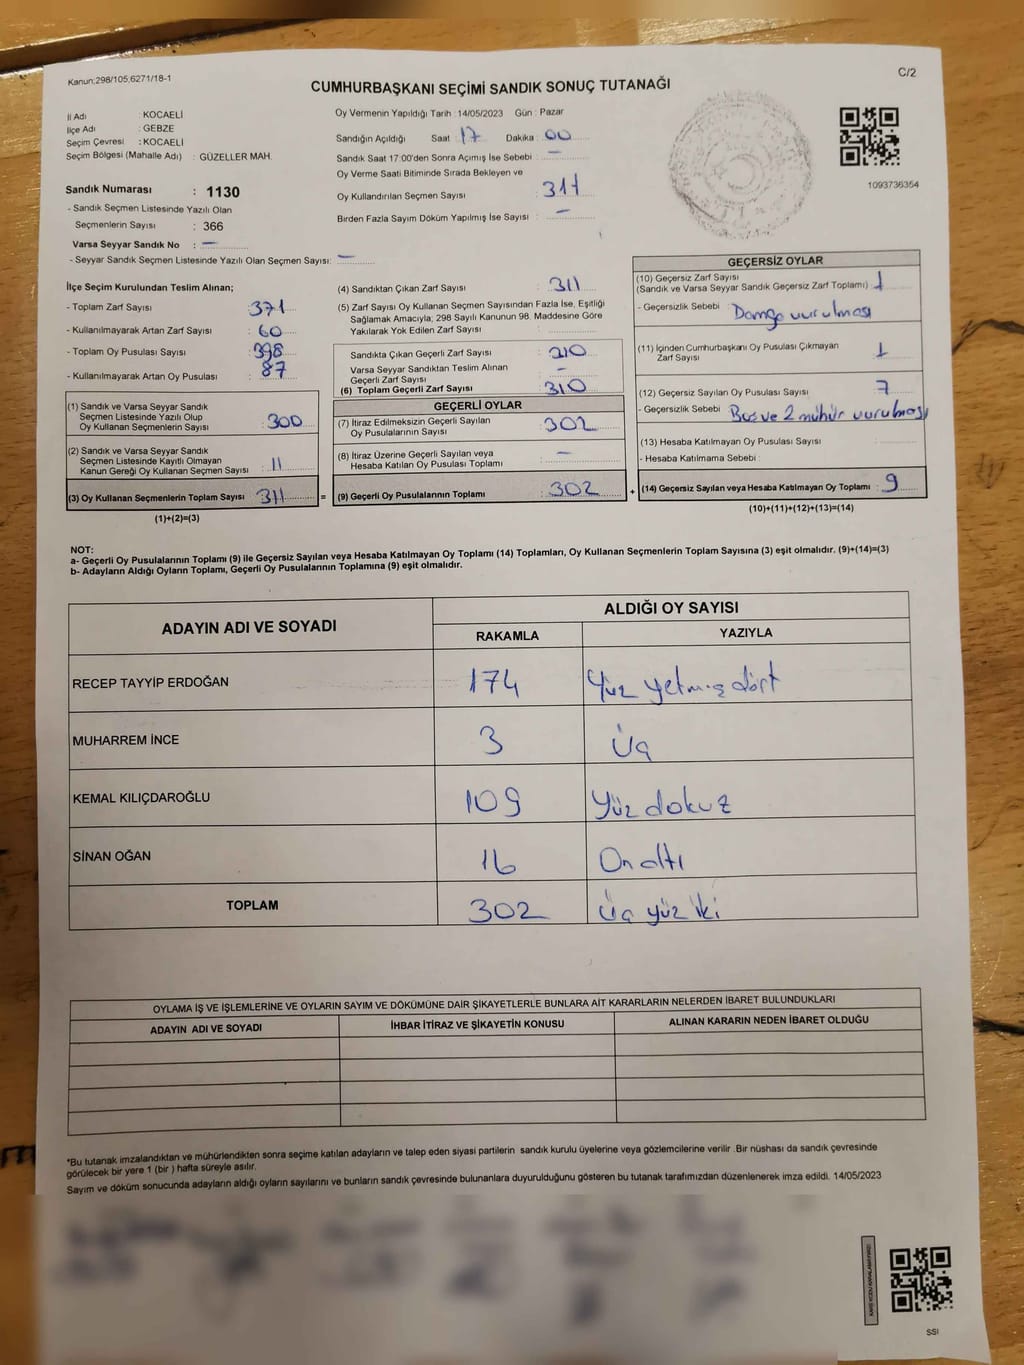 Kanun:298/105,6271/18-1
C/2
CUMHURBAŞKANI SEÇİMİ SANDIK SONUÇ TUTANAĞI
İl Adı : KOCAELİ
İlçe Adı : GEBZE
Seçim Çevresi : KOCAELİ
Seçim Bölgesi (Mahalle Adı) : GÜZELLER MAH.
Sandık Numarası : 1130
- Sandık Seçmen Listesinde Yazılı Olan
Seçmenlerin Sayısı : 366
Varsa Seyyar Sandık No : —
- Seyyar Sandık Seçmen Listesinde Yazılı Olan Seçmen Sayısı: —
Oy Vermenin Yapıldığı Tarih :14/05/2023 Gün : Pazar
Sandığın Açıldığı Saat 17 Dakika : 00
Sandık Saat 17:00'den Sonra Açımış İse Sebebi : —
Oy Verme Saati Bitiminde Sırada Bekleyen ve
Oy Kullandırılan Seçmen Sayısı : 311
Birden Fazla Sayım Döküm Yapılmış İse Sayısı : —
1093736354
İlçe Seçim Kurulundan Teslim Alınan;
- Toplam Zarf Sayısı : 371
- Kullanılmayarak Artan Zarf Sayısı : 60
- Toplam Oy Pusulası Sayısı : 398
- Kullanılmayarak Artan Oy Pusulası : 87
(1) Sandık ve Varsa Seyyar Sandık
Seçmen Listesinde Yazılı Olup
Oy Kullanan Seçmenlerin Sayısı : 300
(2) Sandık ve Varsa Seyyar Sandık
Seçmen Listesinde Kayıtlı Olmayan
Kanun Gereği Oy Kullanan Seçmen Sayısı : 11
(3) Oy Kullanan Seçmenlerin Toplam Sayısı : 311 =
(1)+(2)=(3)
(4) Sandıktan Çıkan Zarf Sayısı : 311
(5) Zarf Sayısı Oy Kullanan Seçmen Sayısından Fazla İse, Eşitliği
Sağlamak Amacıyla; 298 Sayılı Kanunun 98. Maddesine Göre
Yakılarak Yok Edilen Zarf Sayısı : —
Sandıkta Çıkan Geçerli Zarf Sayısı : 310
Varsa Seyyar Sandıktan Teslim Alınan
Geçerli Zarf Sayısı : —
(6) Toplam Geçerli Zarf Sayısı : 310
GEÇERLİ OYLAR
(7) İtiraz Edilmeksizin Geçerli Sayılan
Oy Pusulalarının Sayısı : 302
(8) İtiraz Üzerine Geçerli Sayılan veya
Hesaba Katılan Oy Pusulası Toplamı : —
(9) Geçerli Oy Pusulalarının Toplamı : 302 +
GEÇERSİZ OYLAR
(10) Geçersiz Zarf Sayısı
(Sandık ve Varsa Seyyar Sandık Geçersiz Zarf Toplamı) : 1
- Geçersizlik Sebebi : Damga vurulması
(11) İçinden Cumhurbaşkanı Oy Pusulası Çıkmayan
Zarf Sayısı : 1
(12) Geçersiz Sayılan Oy Pusulası Sayısı : 7
- Geçersizlik Sebebi : Boş ve 2 mühür vurulması
(13) Hesaba Katılmayan Oy Pusulası Sayısı :
- Hesaba Katılmama Sebebi :
(14) Geçersiz Sayılan veya Hesaba Katılmayan Oy Toplamı : 9
(10)+(11)+(12)+(13)=(14)
NOT:
a- Geçerli Oy Pusulalarının Toplamı (9) ile Geçersiz Sayılan veya Hesaba Katılmayan Oy Toplamı (14) Toplamları, Oy Kullanan Seçmenlerin Toplam Sayısına (3) eşit olmalıdır. (9)+(14)=(3)
b- Adayların Aldığı Oyların Toplamı, Geçerli Oy Pusulalarının Toplamına (9) eşit olmalıdır.
ADAYIN ADI VE SOYADI
ALDIĞI OY SAYISI
RAKAMLA YAZIYLA
RECEP TAYYİP ERDOĞAN 174 Yüz yetmiş dört
MUHARREM İNCE 3 Üç
KEMAL KILIÇDAROĞLU 109 Yüz dokuz
SİNAN OĞAN 16 On altı
TOPLAM 302 Üç yüz iki
OYLAMA İŞ VE İŞLEMLERİNE VE OYLARIN SAYIM VE DÖKÜMÜNE DAİR ŞİKAYETLERLE BUNLARA AİT KARARLARIN NELERDEN İBARET BULUNDUKLARI
ADAYIN ADI VE SOYADI İHBAR İTİRAZ VE ŞİKAYETİN KONUSU ALINAN KARARIN NEDEN İBARET OLDUĞU
*Bu tutanak imzalandıktan ve mühürlendikten sonra seçime katılan adayların ve talep eden siyasi partilerin sandık kurulu üyelerine veya gözlemcilerine verilir .Bir nüshası da sandık çevresinde
görülecek bir yere 1 (bir ) hafta süreyle asılır.
Sayım ve döküm sonucunda adayların aldığı oyların sayılarını ve bunların sandık çevresinde bulunanlara duyurulduğunu gösteren bu tutanak tarafımızdan düzenlenerek imza edildi. 14/05/2023
KARE KODU KARALAMAYINIZ!
SSI